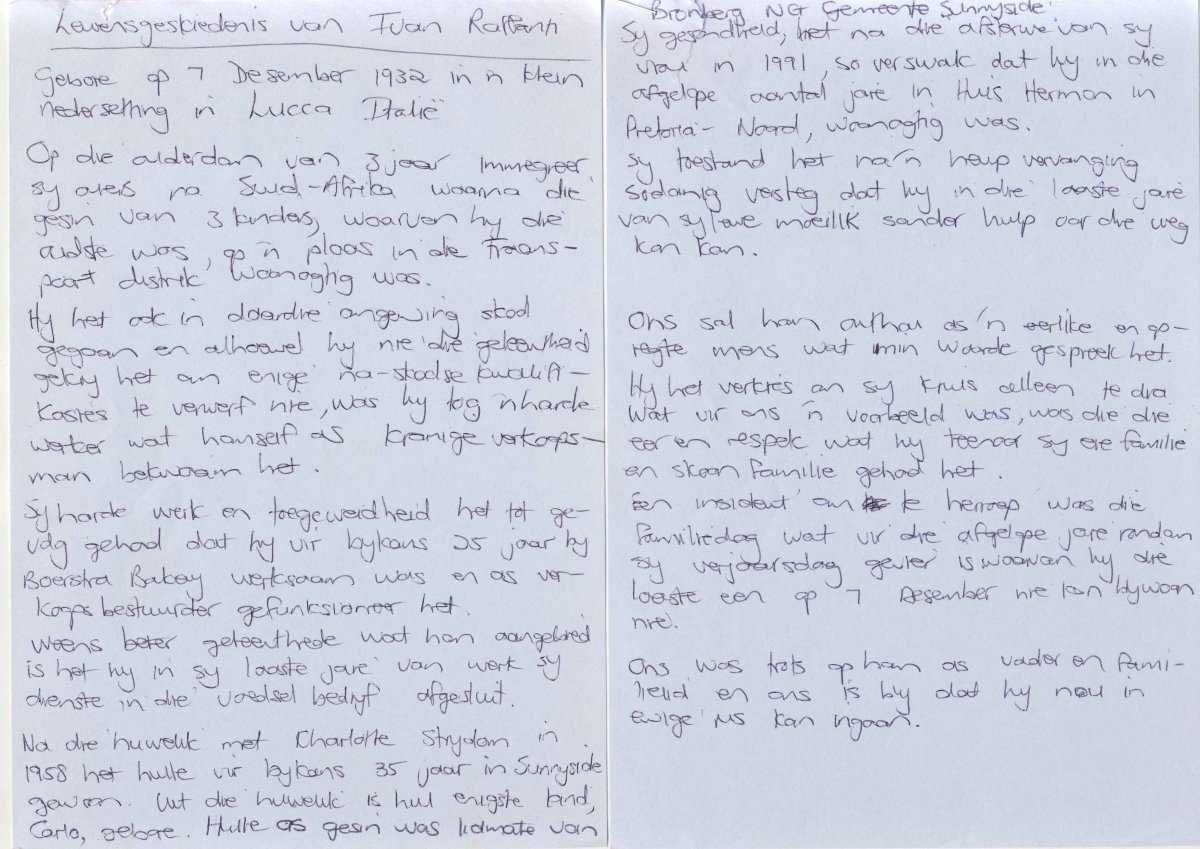 Lewensgeskiedenis van Ivan Raffanti
Gebore op 7 Desember 1932 in 'n klein
nedersetting in Lucca Italië
Op die ouderdom van 3 jaar immegreer
sy ouers na Suid-Afrika waarna die
gesin van 3 kinders, waarvan hy die
oudste was, op 'n plaas in die Frans-
poort distrik woonagtig was.
Hy het ook in daardie omgewing skool
gegaan en alhoewel hy nie die geleentheid
gekry het om enige na-skoolse kwalifi-
kasies te verwerf nie, was hy tog 'n harde
werker wat homself as kranige verkoops-
man bekwaam het.
Sy harde werk en toegeweidheid het tot ge-
volg gehad dat hy vir bykans 25 jaar by
Boerstra Bakery werksaam was en as ver-
koopsbestuurder gefunksioneer het.
Weens beter geleenthede wat hom aangebied
is het hy in sy laaste jare van werk sy
dienste in die voedsel bedryf afgesluit.
Na die huwelik met Charlotte Strydom in
1958 het hulle vir bykans 35 jaar in Sunnyside
gewoon. Uit die huwelik is hul enigste kind,
Carlo, gebore. Hulle as gesin was lidmate van
Bronberg NG Gemeente Sunnyside.
Sy gesondheid, het na die afsterwe van sy
vrou in 1991, so verswak dat hy in die
afgelope aantal jare in Huis Hermon in
Pretoria-Noord, woonagtig was.
Sy toestand het na 'n heup vervanging
sodanig versleg dat hy in die laaste jare
van sy lewe moeilik sonder hulp oor die weg
kon kom.
Ons sal hom onthou as 'n eerlike en op-
regte mens wat min woorde gespreek het.
Hy het verkies om sy kruis alleen te dra
Wat vir ons 'n voorbeeld was, was die die
eer en respek wat hy teenoor sy eie familie
en skoon familie gehad het.
Een insident om te herroep was die
Familiedag wat vir die afgelope jare rondom
sy verjaarsdag gevier is waarvan hy die
laaste een op 7 Desember nie kon bywoon
nie.
Ons was trots op hom as vader en fami-
lielid en ons is bly dat hy nou in
Ewige rus kan ingaan.